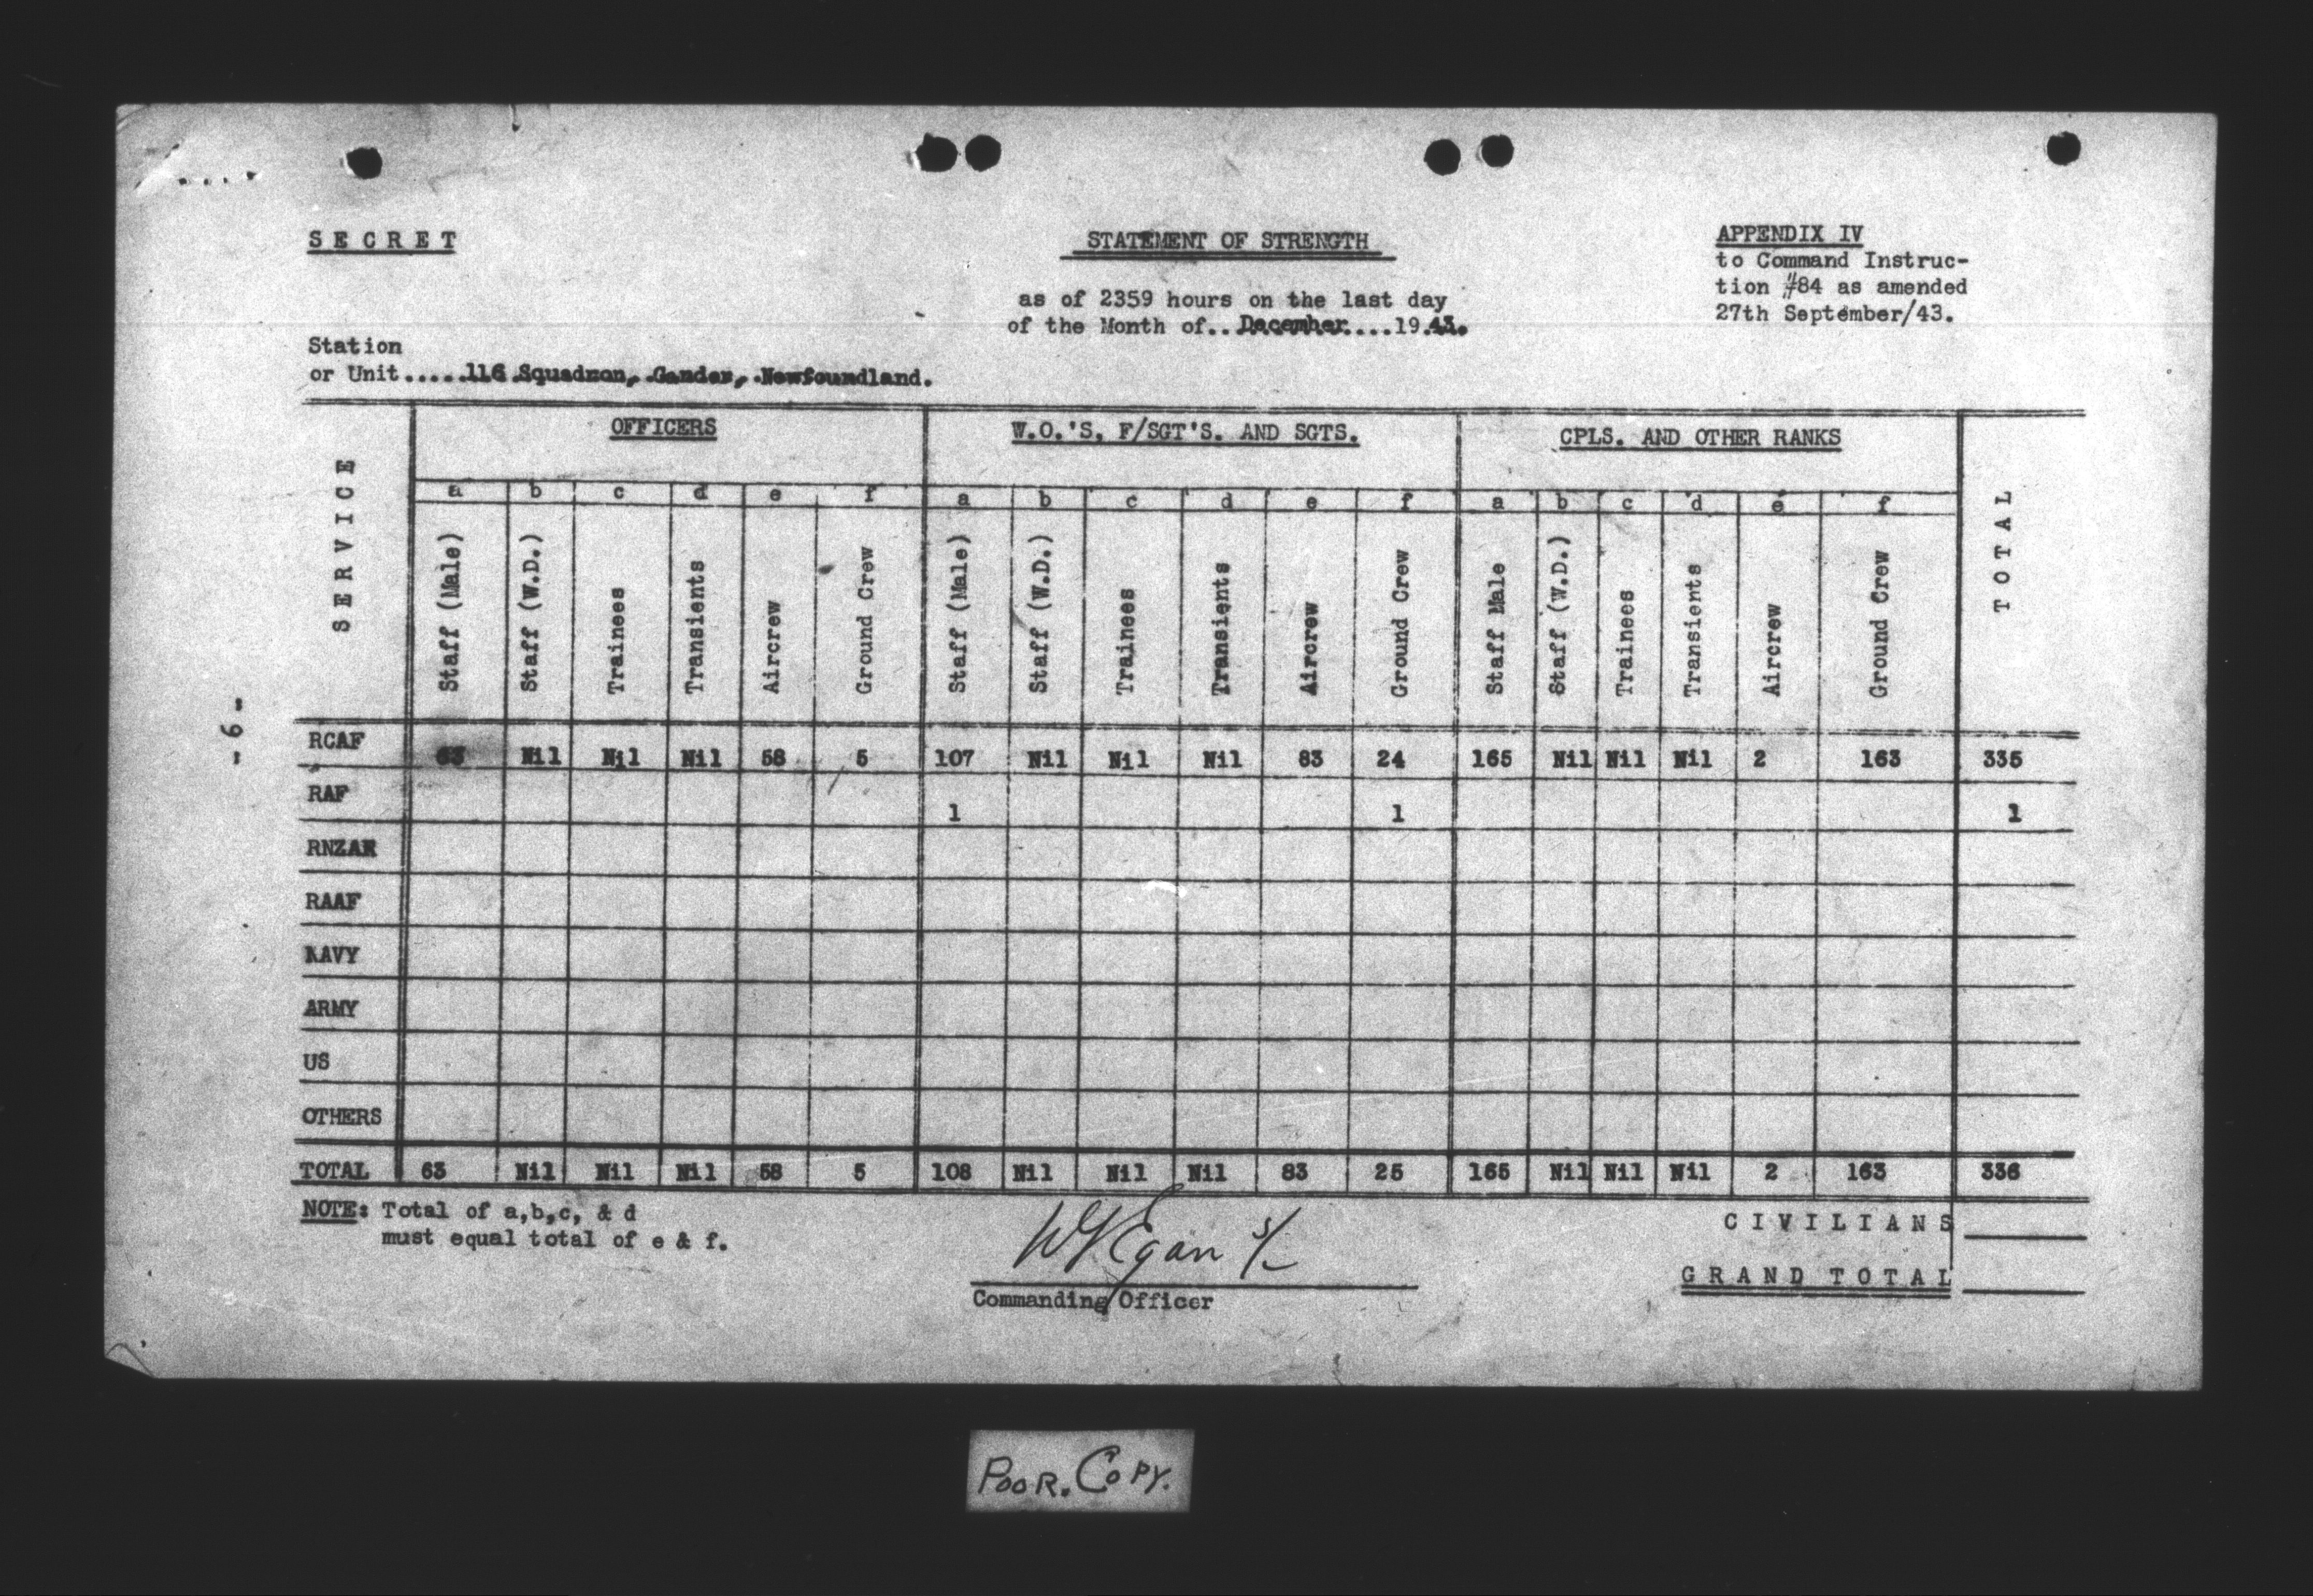 SECRET
STATEMENT OF STRENGTH
APPENDIX IV
to Command Instruc-
tion #84 as amended
27th September/43.
as of 2359 hours on the last day
of the Month of..December....1943.
Station
or Unit.....116 Squadron, Gander, Newfoundland.
SERVICE OFFICERS W.O.'S, F/SGT'S. AND SGTS. CPLS. AND OTHER RANKS TOTAL
a b c d e f a b c d e f a b c d e f
Staff (Male) Staff (W.D.) Trainees Transients Aircrew Ground Crew Staff (Male) Staff (W.D.) Trainees Transients Aircrew Ground Crew Staff Male Staff (W.D.) Trainees Transients Aircrew Ground Crew
-6-
RCAF 63 Nil Nil Nil 58 5 107 Nil Nil Nil 83 24 165 Nil Nil Nil 2 163 335
RAF 1 1 1
RNZAF
RAAF
NAVY
ARMY
US
OTHERS
TOTAL 63 Nil Nil Nil 58 5 108 Nil Nil Nil 83 25 165 Nil Nil Nil 2 163 336
NOTE: Total of a,b,c, & d
must equal total of e & f.
Egan
Commanding Officer
CIVILIANS
GRAND TOTAL
POOR. COPY.